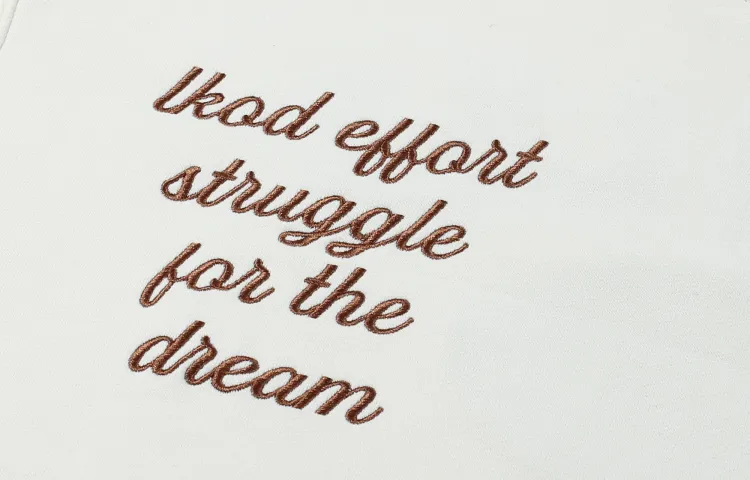 lkod effort
struggle
for the
dream